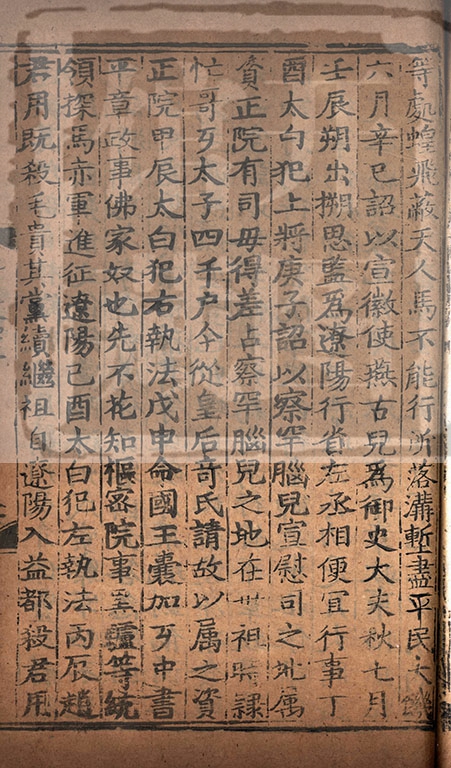 等處蝗飛蔽天人馬不能行所落溝塹盡平民大饑
六月辛巳詔以宣徽使燕古兒爲御史大夫秋七月
壬辰朔出搠思監爲遼陽行省左丞相便宜行事丁
酉太白犯上將庚子詔以察罕腦兒宣慰司之地属
資正院有司毋得差占察罕腦兒之地在世祖時隸
忙哥歹太子四千户今從皇后竒氏請故以属之資
正院甲辰太白犯右執法戊申命國王囊加歹中書
平章政事佛家奴也先不花知樞密院事黑驢等統
領探馬赤軍進征遼陽己酉太白犯左執法丙辰趙
君用既殺毛貴其黨續繼祖自遼陽入益都殺君用